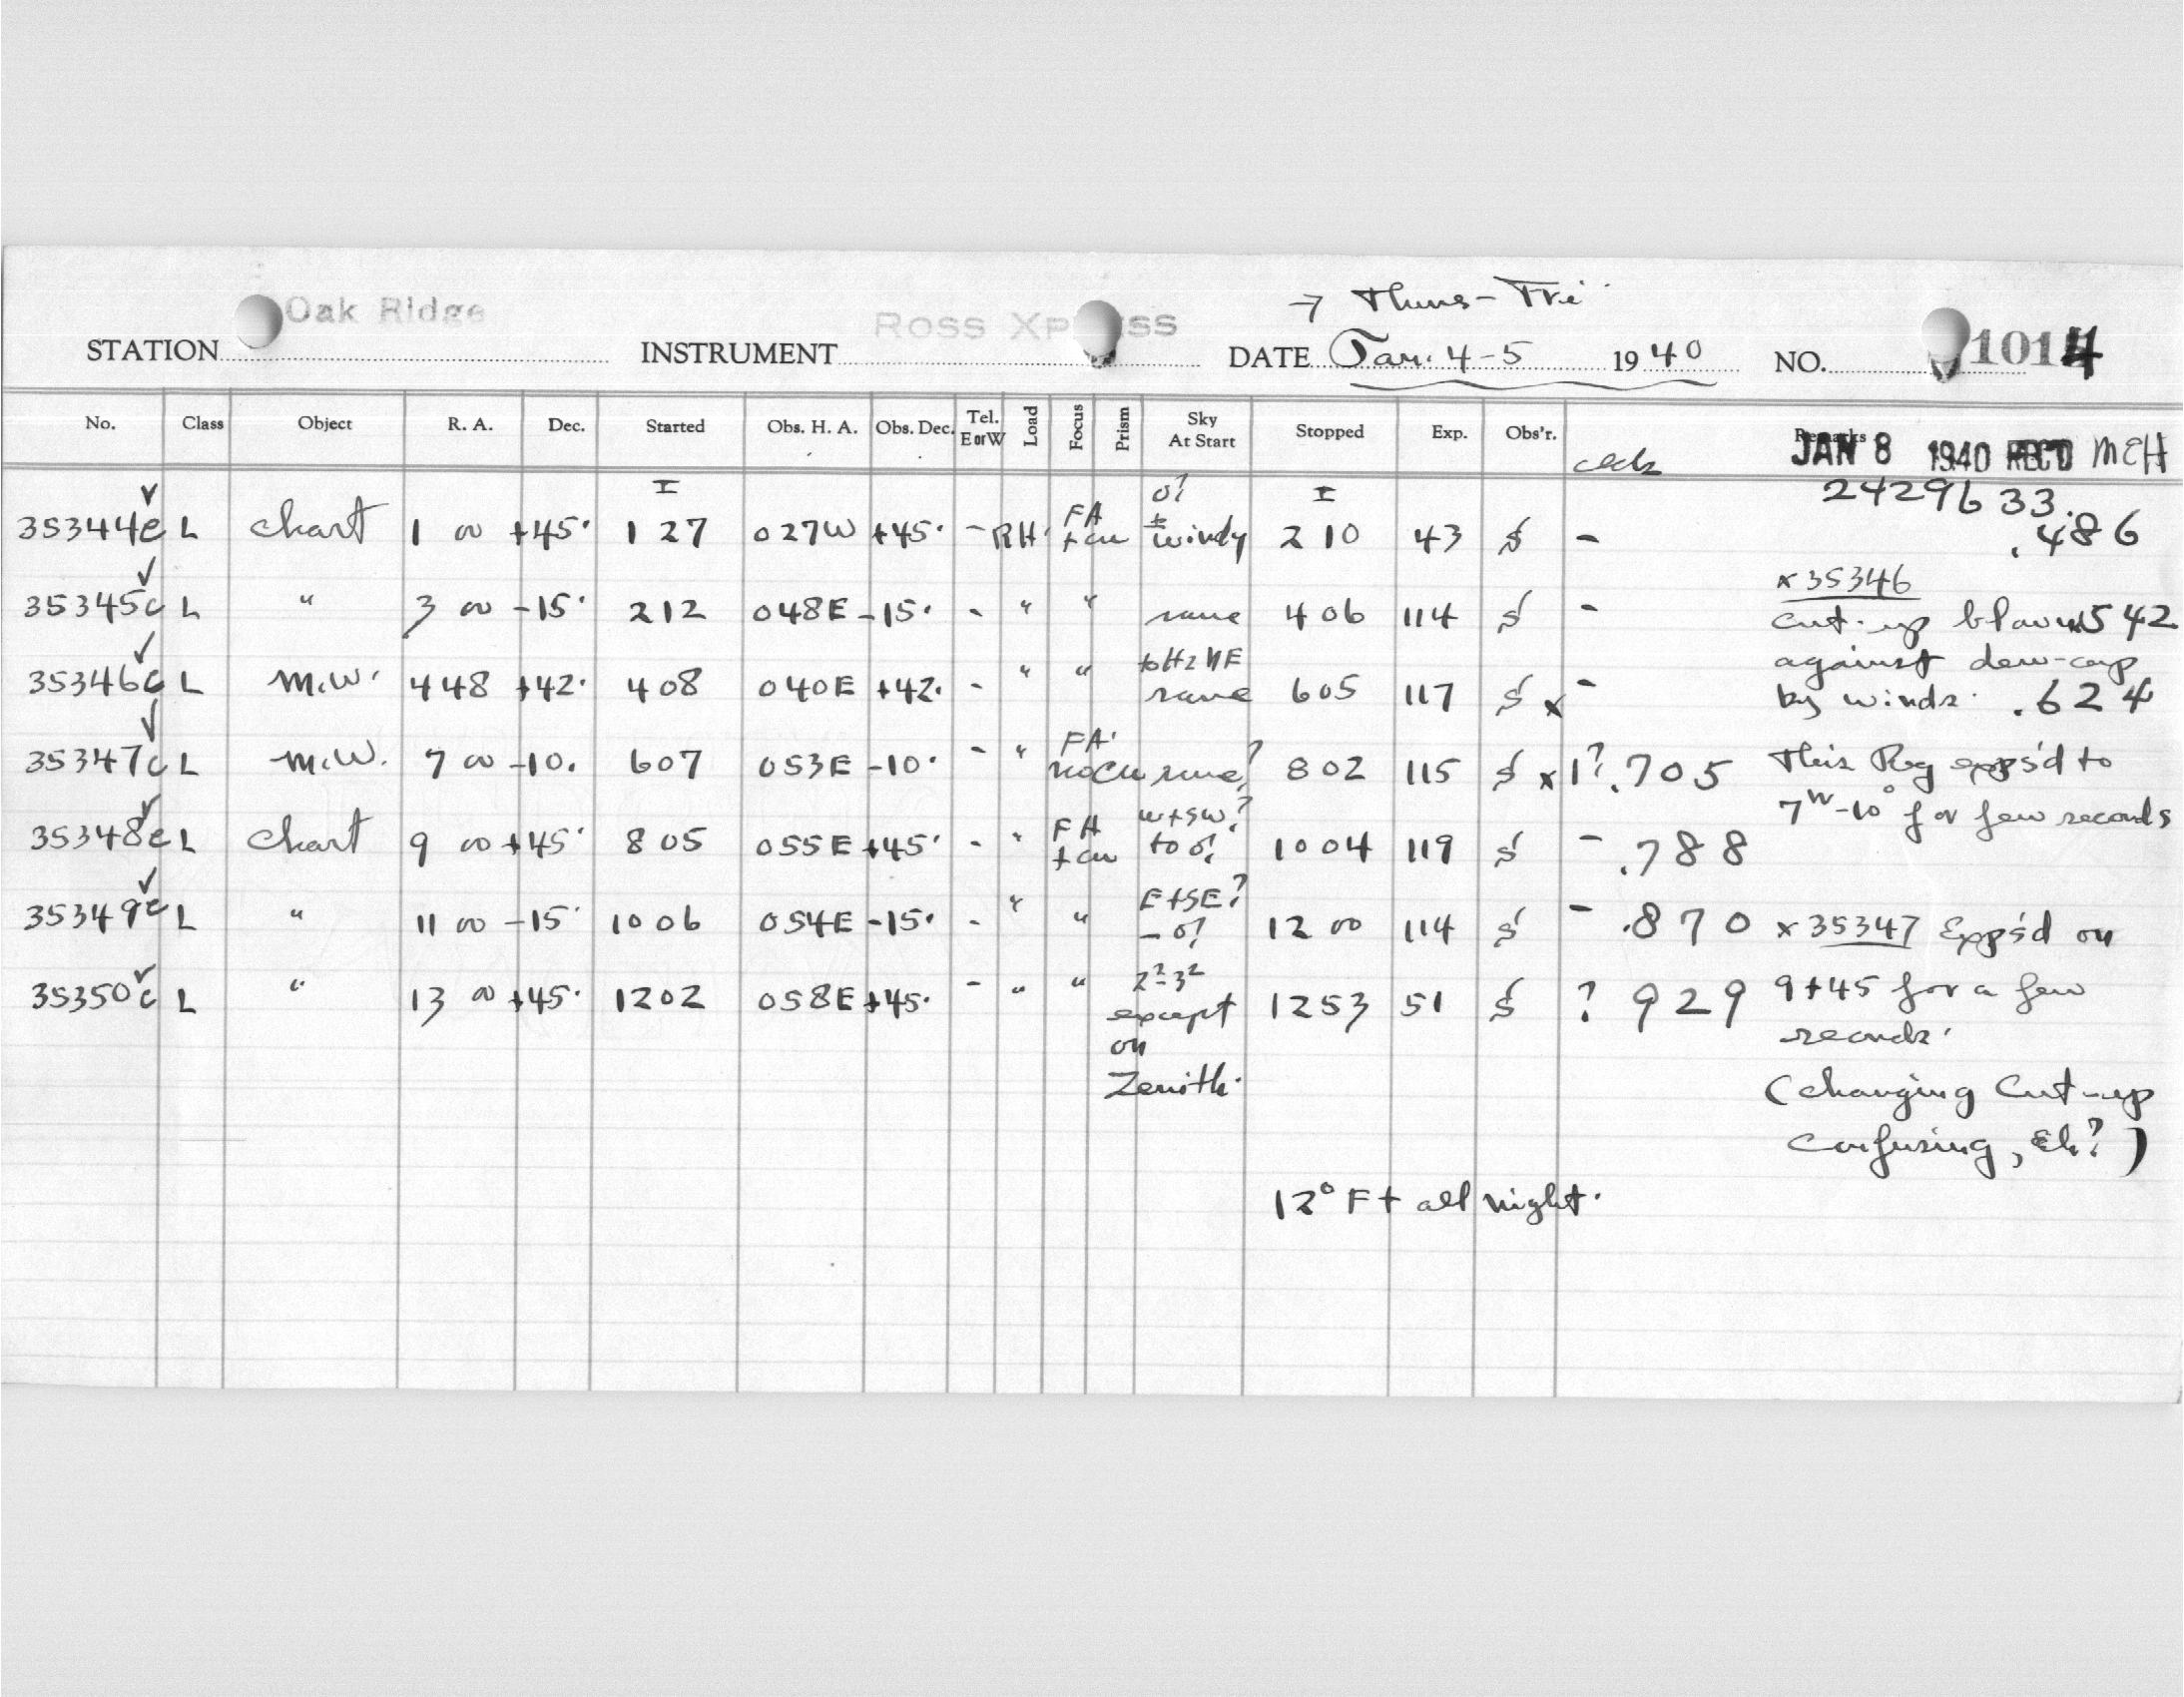 → Thurs-Fri
Oak Ridge Ross Xpress
STATION INSTRUMENT DATE Jan. 4-5 1940 NO. 1014
No. Class Object R. A. Dec. Started Obs. H. A. Obs. Dec. Tel. E or W Load Focus Prism Sky At Start Stopped Exp. Obs'r. Remarks
JAN 8 1940 REC'D MEH
I o? I 2429633.
35344c L Chart 1 00 +45° 1 27 027W +45° - RH FA + cu ± windy 2 10 43 $ - .486
x 35346
35345c L " 3 00 -15° 212 048E -15° - " " same 406 114 $ - cut-up blown .542
to H2 NE against dew-cap
35346c L M.W. 448 +42° 408 040E +42° - " " same 605 117 $ x - by winds. .624
35347c L M.W. 7 00 -10° 607 053E -10° - " FA no cu same? 802 115 $ x 1? .705 This Reg exps'd to
7ᵂ-10° for few seconds
35348c L Chart 9 00 +45° 805 055E +45° - " FA + cu w+sw? to o? 1004 119 $ - .788
35349c L " 11 00 -15° 1006 054E -15° - " " E+SE? - o? 1200 114 $ - .870 x 35347 Exps'd on
35350c L " 13 00 +45° 1202 058E +45° - " " 2²-3² except on Zenith. 1253 51 $ ? 929 9+45 for a few
seconds.
(Changing Cut-up
confusing, Eh?)
12° F + all night.